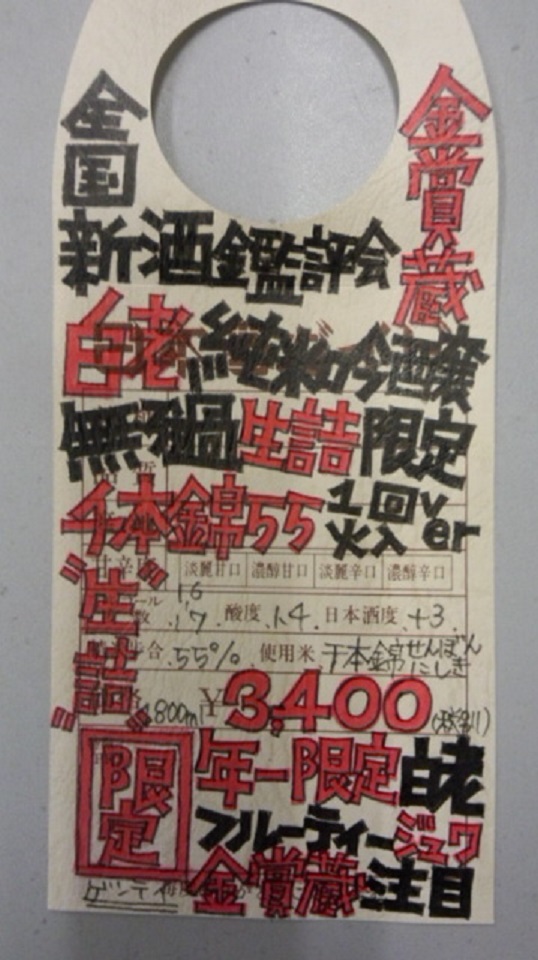 全国
金賞蔵
新酒鑑評会
白老 純米吟醸
無ろ過生詰限定
千本錦55 1回火入ver
"生詰"
淡麗甘口 濃醇甘口 淡麗辛口 濃醇辛口
16
17 酸度 1.4 日本酒度 +3
合 55% 使用米 千本錦 せんぼんにしき
1800ml ¥3,400(税別)
限定
年一限定白老
フルーティージュワ
金賞蔵注目